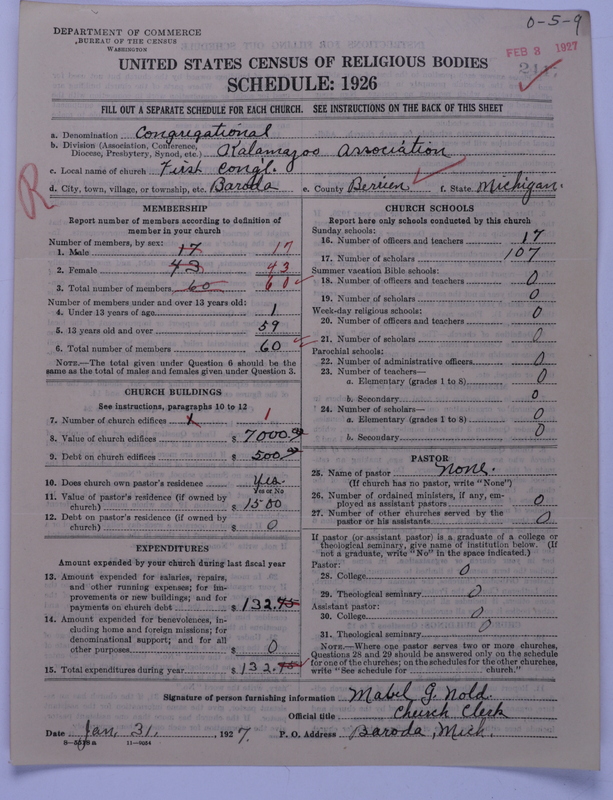 0-5-9
DEPARTMENT OF COMMERCE
BUREAU OF THE CENSUS
WASHINGTON
FEB 3 1927
UNITED STATES CENSUS OF RELIGIOUS BODIES
SCHEDULE: 1926
FILL OUT A SEPARATE SCHEDULE FOR EACH CHURCH. SEE INSTRUCTIONS ON THE BACK OF THIS SHEET
a. Denomination Congregational
b. Division (Association, Conference, Diocese, Presbytery, Synod, etc.) Kalamazoo Association
c. Local name of church First Congl.
d. City, town, village, or township, etc. Baroda e. County Berrien f. State Michigan.
R
MEMBERSHIP
Report number of members according to definition of
member in your church
Number of members, by sex:
1. Male 17 17
2. Female 43 43
3. Total number of members 60 60
Number of members under and over 13 years old:
4. Under 13 years of age 1
5. 13 years old and over 59
6. Total number of members 60
NOTE.—The total given under Question 6 should be the
same as the total of males and females given under Question 3.
CHURCH BUILDINGS
See instructions, paragraphs 10 to 12
7. Number of church edifices 1 1
8. Value of church edifices $ 7000.00
9. Debt on church edifices $ 500.00
10. Does church own pastor's residence Yes.
Yes or No
11. Value of pastor's residence (if owned by
church) $ 1500
12. Debt on pastor's residence (if owned by
church) $ 0
EXPENDITURES
Amount expended by your church during last fiscal year
13. Amount expended for salaries, repairs,
and other running expenses; for im-
provements or new buildings; and for
payments on church debt $ 132.45
14. Amount expended for benevolences, in-
cluding home and foreign missions; for
denominational support; and for all
other purposes $ 0
15. Total expenditures during year $ 132.45
CHURCH SCHOOLS
Report here only schools conducted by this church
Sunday schools:
16. Number of officers and teachers 17
17. Number of scholars 107
Summer vacation Bible schools:
18. Number of officers and teachers 0
19. Number of scholars 0
Week-day religious schools: 0
20. Number of officers and teachers
21. Number of scholars 0
Parochial schools:
22. Number of administrative officers 0
23. Number of teachers—
a. Elementary (grades 1 to 8) 0
b. Secondary 0
24. Number of scholars—
a. Elementary (grades 1 to 8) 0
b. Secondary 0
PASTOR
25. Name of pastor none.
(If church has no pastor, write "None")
26. Number of ordained ministers, if any, em-
ployed as assistant pastors 0
27. Number of other churches served by the
pastor or his assistants 0
If pastor (or assistant pastor) is a graduate of a college or
theological seminary, give name of institution below. (If
not a graduate, write "No" in the space indicated.)
Pastor:
28. College 0
29. Theological seminary 0
Assistant pastor:
30. College 0
31. Theological seminary 0
NOTE.—Where one pastor serves two or more churches,
Questions 28 and 29 should be answered only on the schedule
for one of the churches; on the schedules for the other churches,
write "See schedule for church."
Signature of person furnishing information Mabel G. Nold.
Official title Church Clerk
Date Jan. 31, 1927. P. O. Address Baroda, Mich.
8-5518a 11-9034